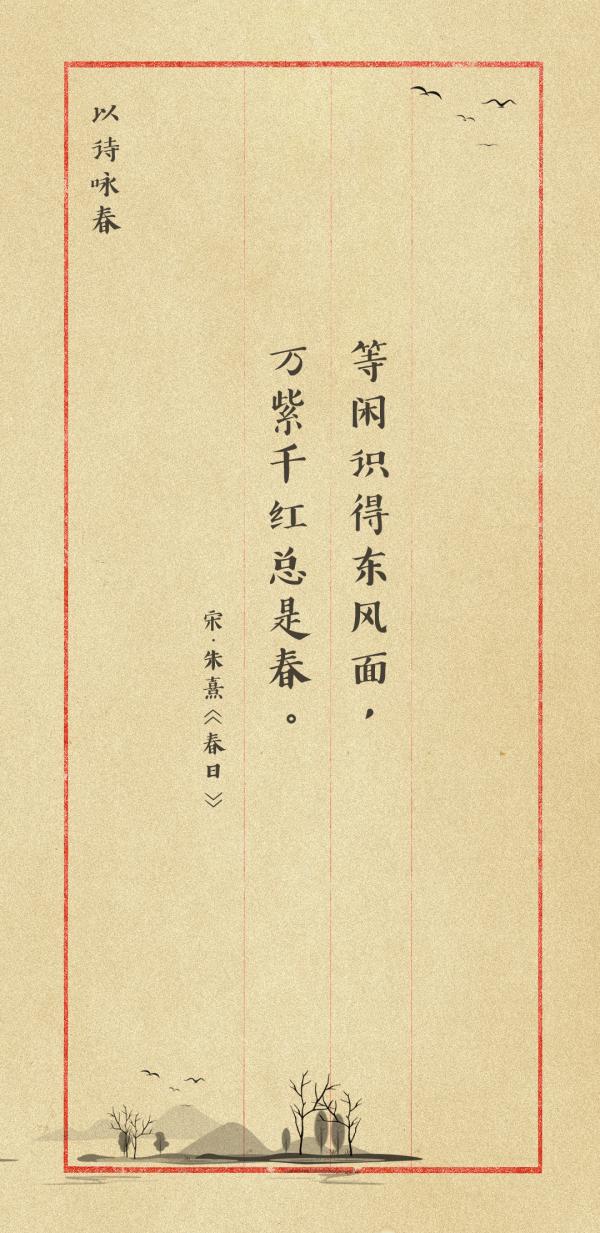 等闲识得东风面，
万紫千红总是春。
宋·朱熹《春日》
以诗咏春